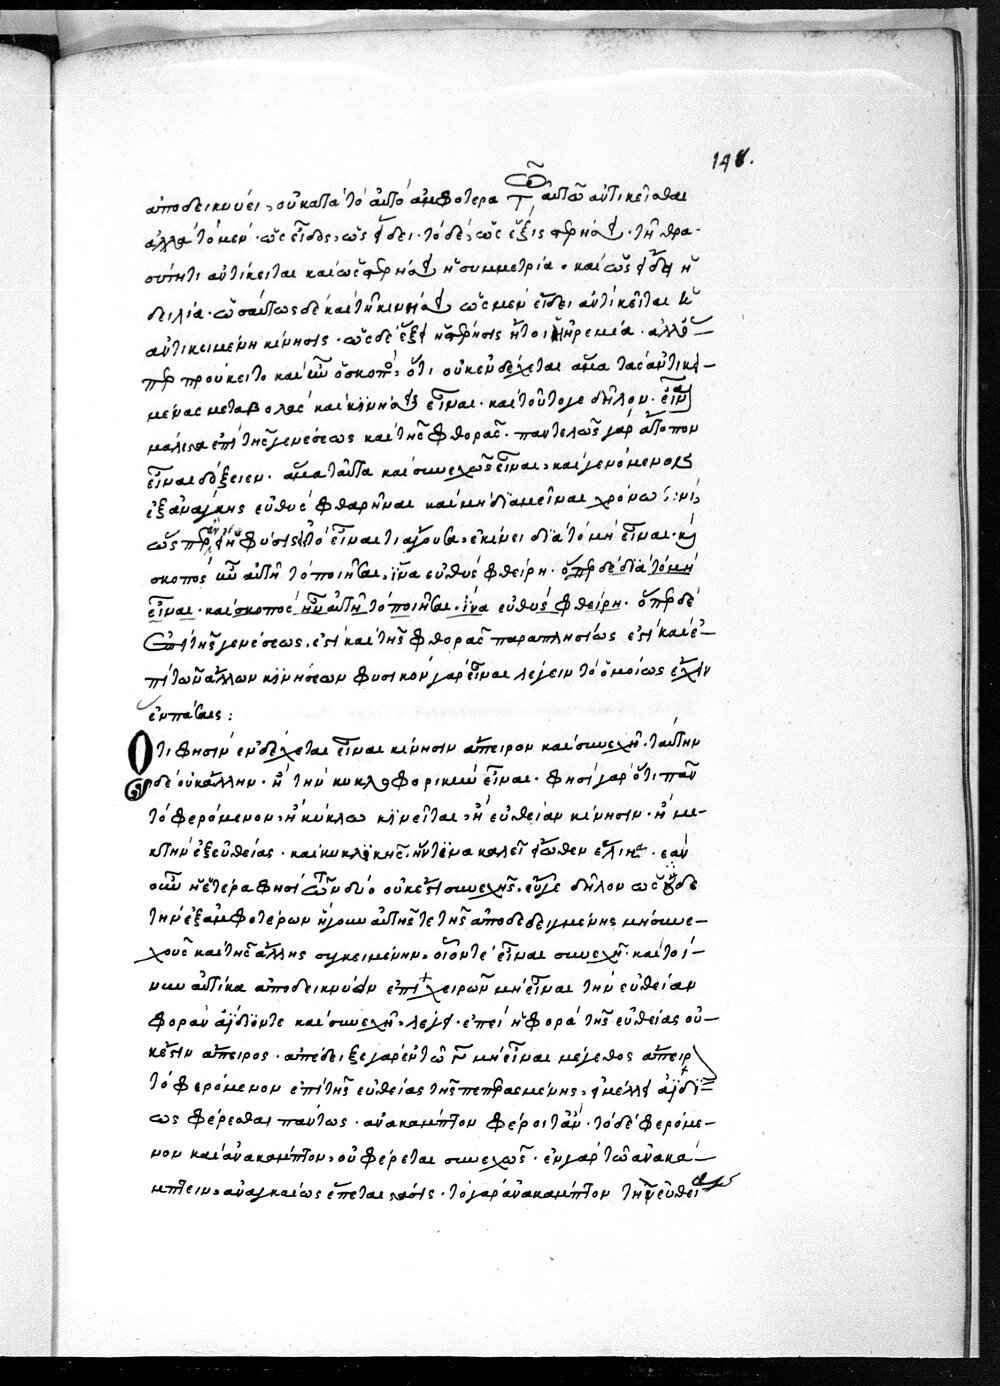 148.
ἀποδεικνύει, οὐ κατὰ τὸ αὐτὸ ἀμφότερα τῶ αὐτῶ ἀντικεῖσθαι
ἀλλὰ τὸ μὲν ὡς εἶδος, ὡς εἴδει· τὸ δὲ, ὡς ἕξις στερήσει. τῆ θρα-
σύτητι ἀντίκειται καὶ ὡς στερήσει ἡ συμμετρία· καὶ ὡς εἴδει ἡ
δειλία· ὡσαύτως δὲ καὶ τῆ κινήσει ὡς μὲν εἴδει ἀντίκειται ἡ
ἀντικειμένη κίνησις· ὡς δὲ ἕξει ἡ στέρησις ἤτοι ἡ ἠρεμία· ἀλλ'
ὅπερ προύκειτο καὶ ἦν ὁ σκοπὸς, ὅτι οὐκ ἐνδέχεται ἅμα τὰς ἀντικει-
μένας μεταβολὰς καὶ κινήσεις εἶναι· καὶ τοῦτό γε δῆλον·
μάλιστα ἐπὶ τῆς γενέσεως καὶ τῆς φθορᾶς· παντελῶς γὰρ ἄτοπον
εἶναι δόξειεν· ἅμα ταῦτα καὶ συνεχῶς εἶναι, καὶ γενόμενον
ἐξ ἀνάγκης εὐθὺς φθαρῆναι καὶ μὴ διαμεῖναι χρόνω τινί,
ὥσπερ εἰ ἡ φύσις τὸ εἶναί τι ἄγουσα, ἐκίνει διὰ τὸ μὴ εἶναι· καὶ
σκοπὸς ἦν αὐτῆ τὸ ποιῆσαι, ἵνα εὐθὺς φθείρη· ὅπερ δὲ διὰ τὸ μὴ
εἶναι· καὶ σκοπὸς ἦν αὐτῆ τὸ ποιῆσαι, ἵνα εὐθὺς φθείρη· ὅπερ δὲ
ἐπὶ τῆς γενέσεως, ἐστὶ καὶ τῆς φθορᾶς παραπλησίως ἐστὶ καὶ ἐ-
πὶ τῶν ἄλλων κινήσεων φυσικὸν γὰρ εἶναι λέγειν τὸ ὁμοίως ἔχειν
ἐν πάσαις:
Ὅτι φησὶν ἐνδέχεται εἶναι κίνησιν ἄπειρον καὶ συνεχῆ· ταύτην
δὲ οὐκ ἄλλην· ἢ τὴν κυκλοφορικὴν εἶναι· φησὶ γὰρ ὅτι πᾶν
τὸ φερόμενον, ἢ κύκλω κινεῖται, ἢ εὐθεῖαν κίνησιν· ἢ μι-
κτὴν ἐξ εὐθείας· καὶ κυκλικῆς, ἥντινα καλεῖ ἔξωθεν ἕλικα· ἐὰν
οὖν ἡ ἑτέρα φησὶ τῶν δύο οὐκ ἔστι συνεχὴς, εὔγε δῆλον ὡς οὐδὲ
τὴν ἐξ ἀμφοτέρων ἤγουν αὐτῆς τε τῆς ἀποδεδειγμένης μὴ συνε-
χοῦς καὶ τῆς ἄλλης συγκειμένην, οἷόν τε εἶναι συνεχῆ· καὶ τοί-
νυν αὐτίκα ἀποδεικνύειν ἐπιχειρῶν μὴ εἶναι τὴν εὐθεῖαν
φορὰν ἀΐδιόν τε καὶ συνεχῆ, λέγει· ἐπεὶ ἡ φορὰ τῆς εὐθείας οὐ-
κ ἔστιν ἄπειρος· ἀπέδειξε γὰρ ἐν τῶ γ μὴ εἶναι μέγεθος ἄπειρον
τὸ φερόμενον ἐπὶ τῆς εὐθείας τῆς πεπερασμένης, εἰ μέλλει ἀϊδί-
ως φέρεσθαι πάντως· ἀνακάμπτον φέροιτ' ἄν· τὸ δὲ φερόμε-
νον καὶ ἀνακάμπτον, οὐ φέρεται συνεχῶς· ἐν γὰρ τῶ ἀνακά-
μπτειν, ἀναγκαίως ἕπεται στάσις· τὸ γὰρ ἀνακάμπτον